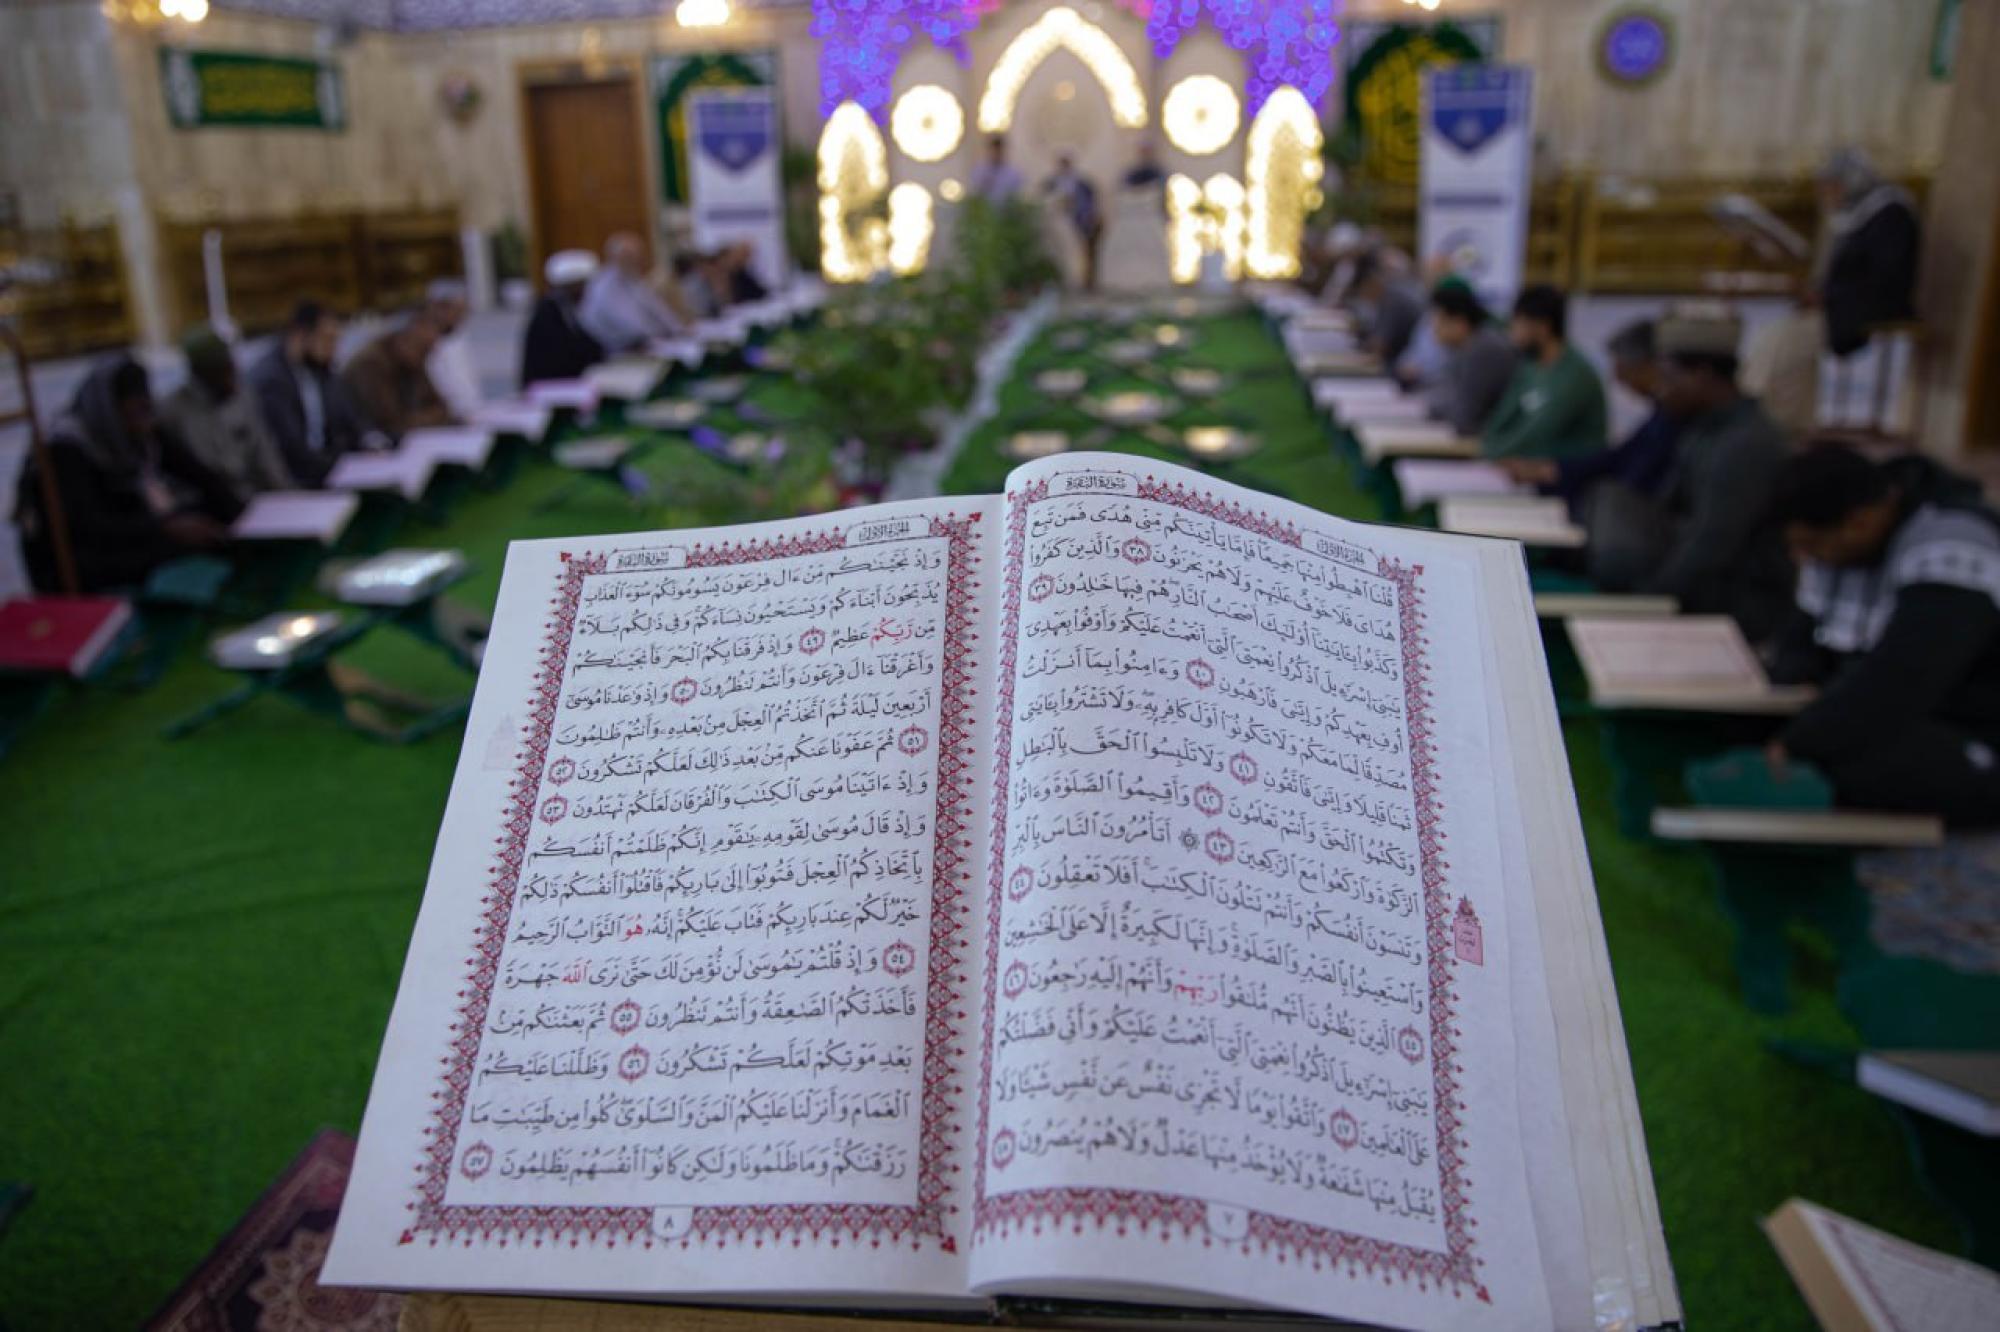 سُورَةُ البَقَرَةِ
الجُزْءُ الأَوَّلُ
قُلْنَا ٱهْبِطُوا۟ مِنْهَا جَمِيعًا فَإِمَّا يَأْتِيَنَّكُم مِّنِّى هُدًى فَمَن تَبِعَ
هُدَاىَ فَلَا خَوْفٌ عَلَيْهِمْ وَلَا هُمْ يَحْزَنُونَ ٣٨ وَٱلَّذِينَ كَفَرُوا۟
وَكَذَّبُوا۟ بِـَٔايَٰتِنَآ أُو۟لَٰٓئِكَ أَصْحَٰبُ ٱلنَّارِ هُمْ فِيهَا خَٰلِدُونَ ٣٩
يَٰبَنِىٓ إِسْرَٰٓءِيلَ ٱذْكُرُوا۟ نِعْمَتِىَ ٱلَّتِىٓ أَنْعَمْتُ عَلَيْكُمْ وَأَوْفُوا۟ بِعَهْدِىٓ
أُوفِ بِعَهْدِكُمْ وَإِيَّٰىَ فَٱرْهَبُونِ ٤٠ وَءَامِنُوا۟ بِمَآ أَنزَلْتُ
مُصَدِّقًا لِّمَا مَعَكُمْ وَلَا تَكُونُوٓا۟ أَوَّلَ كَافِرٍۭ بِهِۦ وَلَا تَشْتَرُوا۟ بِـَٔايَٰتِى
ثَمَنًا قَلِيلًا وَإِيَّٰىَ فَٱتَّقُونِ ٤١ وَلَا تَلْبِسُوا۟ ٱلْحَقَّ بِٱلْبَٰطِلِ
وَتَكْتُمُوا۟ ٱلْحَقَّ وَأَنتُمْ تَعْلَمُونَ ٤٢ وَأَقِيمُوا۟ ٱلصَّلَوٰةَ وَءَاتُوا۟
ٱلزَّكَوٰةَ وَٱرْكَعُوا۟ مَعَ ٱلرَّٰكِعِينَ ٤٣ ۞ أَتَأْمُرُونَ ٱلنَّاسَ بِٱلْبِرِّ
وَتَنسَوْنَ أَنفُسَكُمْ وَأَنتُمْ تَتْلُونَ ٱلْكِتَٰبَ أَفَلَا تَعْقِلُونَ ٤٤
وَٱسْتَعِينُوا۟ بِٱلصَّبْرِ وَٱلصَّلَوٰةِ وَإِنَّهَا لَكَبِيرَةٌ إِلَّا عَلَى ٱلْخَٰشِعِينَ
٤٥ ٱلَّذِينَ يَظُنُّونَ أَنَّهُم مُّلَٰقُوا۟ رَبِّهِمْ وَأَنَّهُمْ إِلَيْهِ رَٰجِعُونَ ٤٦
يَٰبَنِىٓ إِسْرَٰٓءِيلَ ٱذْكُرُوا۟ نِعْمَتِىَ ٱلَّتِىٓ أَنْعَمْتُ عَلَيْكُمْ وَأَنِّى فَضَّلْتُكُمْ
عَلَى ٱلْعَٰلَمِينَ ٤٧ وَٱتَّقُوا۟ يَوْمًا لَّا تَجْزِى نَفْسٌ عَن نَّفْسٍ شَيْـًٔا وَلَا
يُقْبَلُ مِنْهَا شَفَٰعَةٌ وَلَا يُؤْخَذُ مِنْهَا عَدْلٌ وَلَا هُمْ يُنصَرُونَ ٤٨
٧
سُورَةُ البَقَرَةِ
الجُزْءُ الأَوَّلُ
وَإِذْ نَجَّيْنَٰكُم مِّنْ ءَالِ فِرْعَوْنَ يَسُومُونَكُمْ سُوٓءَ ٱلْعَذَابِ
يُذَبِّحُونَ أَبْنَآءَكُمْ وَيَسْتَحْيُونَ نِسَآءَكُمْ وَفِى ذَٰلِكُم بَلَآءٌ
مِّن رَّبِّكُمْ عَظِيمٌ ٤٩ وَإِذْ فَرَقْنَا بِكُمُ ٱلْبَحْرَ فَأَنجَيْنَٰكُمْ
وَأَغْرَقْنَآ ءَالَ فِرْعَوْنَ وَأَنتُمْ تَنظُرُونَ ٥٠ وَإِذْ وَٰعَدْنَا مُوسَىٰٓ
أَرْبَعِينَ لَيْلَةً ثُمَّ ٱتَّخَذْتُمُ ٱلْعِجْلَ مِنۢ بَعْدِهِۦ وَأَنتُمْ ظَٰلِمُونَ
٥١ ثُمَّ عَفَوْنَا عَنكُم مِّنۢ بَعْدِ ذَٰلِكَ لَعَلَّكُمْ تَشْكُرُونَ ٥٢
وَإِذْ ءَاتَيْنَا مُوسَى ٱلْكِتَٰبَ وَٱلْفُرْقَانَ لَعَلَّكُمْ تَهْتَدُونَ ٥٣
وَإِذْ قَالَ مُوسَىٰ لِقَوْمِهِۦ يَٰقَوْمِ إِنَّكُمْ ظَلَمْتُمْ أَنفُسَكُم
بِٱتِّخَاذِكُمُ ٱلْعِجْلَ فَتُوبُوٓا۟ إِلَىٰ بَارِئِكُمْ فَٱقْتُلُوٓا۟ أَنفُسَكُمْ ذَٰلِكُمْ
خَيْرٌ لَّكُمْ عِندَ بَارِئِكُمْ فَتَابَ عَلَيْكُمْ إِنَّهُۥ هُوَ ٱلتَّوَّابُ ٱلرَّحِيمُ
٥٤ وَإِذْ قُلْتُمْ يَٰمُوسَىٰ لَن نُّؤْمِنَ لَكَ حَتَّىٰ نَرَى ٱللَّهَ جَهْرَةً
فَأَخَذَتْكُمُ ٱلصَّٰعِقَةُ وَأَنتُمْ تَنظُرُونَ ٥٥ ثُمَّ بَعَثْنَٰكُم مِّنۢ
بَعْدِ مَوْتِكُمْ لَعَلَّكُمْ تَشْكُرُونَ ٥٦ وَظَلَّلْنَا عَلَيْكُمُ
ٱلْغَمَامَ وَأَنزَلْنَا عَلَيْكُمُ ٱلْمَنَّ وَٱلسَّلْوَىٰ كُلُوا۟ مِن طَيِّبَٰتِ مَا
رَزَقْنَٰكُمْ وَمَا ظَلَمُونَا وَلَٰكِن كَانُوٓا۟ أَنفُسَهُمْ يَظْلِمُونَ ٥٧
٨